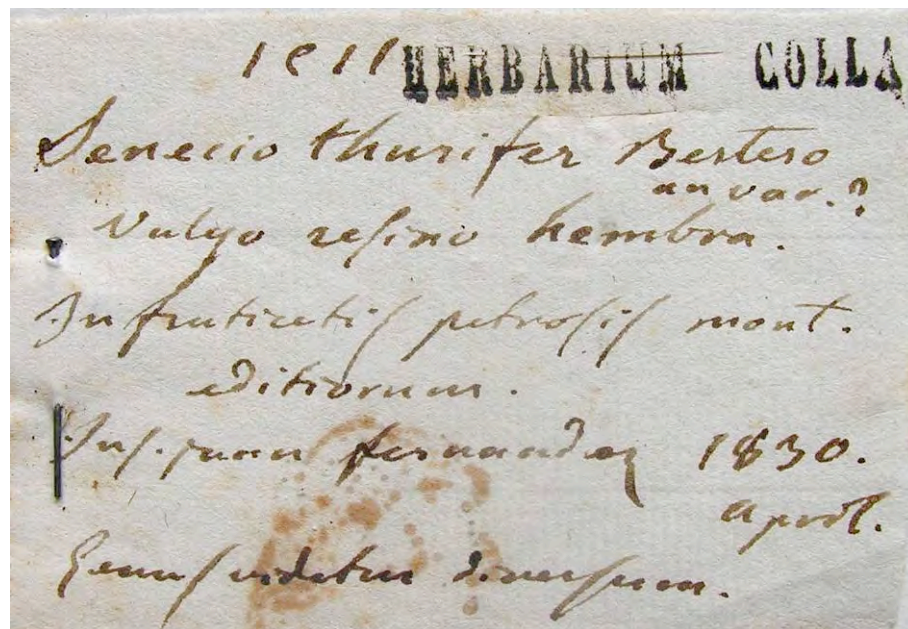 1811 HERBARIUM COLLA
Senecio thurifer Bertero
an var.?
Vulgo resino hembra.
In fruticetis petrosis mont.
editiorum.
Ins. juan fernandez 1830.
april.
Genus videtur diversum.